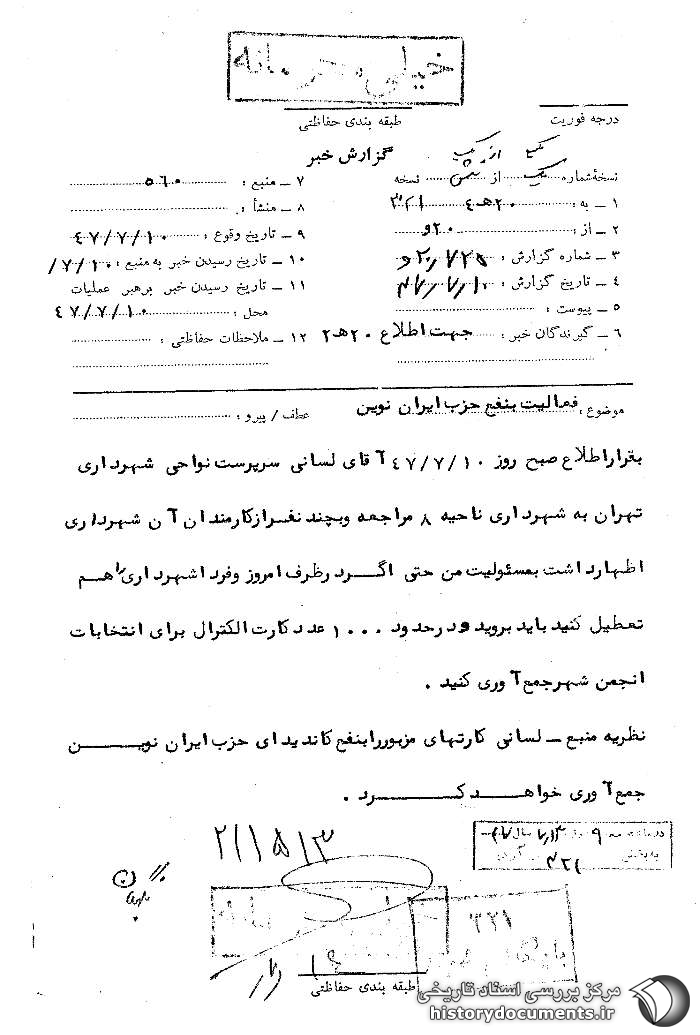 خیلی محرمانه
درجه فوریت
طبقه بندی حفاظتی
گزارش خبر
نسخهٔ شماره یک از شش نسخه
۱ ـ به : ۲۰ هـ ۴ ۳۲۱
۲ ـ از : ۲۰ و
۳ ـ شماره گزارش :
۴ ـ تاریخ گزارش : ۴۷/۷/۱۰
۵ ـ پیوست :
۶ ـ گیرندگان خبر : جهت اطلاع ۲۰ هـ ۲
۷ ـ منبع : ۵۶۰
۸ ـ منشأ :
۹ ـ تاریخ وقوع : ۴۷/۷/۱۰
۱۰ ـ تاریخ رسیدن خبر به منبع : ۷/۱۰/
۱۱ ـ تاریخ رسیدن خبر برهبر عملیات
محل : ۴۷/۷/۱۰
۱۲ ـ ملاحظات حفاظتی :
موضوع : فعالیت بنفع حزب ایران نوین
عطف / پیرو :
بقرار اطلاع صبح روز ۴۷/۷/۱۰ آقای لسانی سرپرست نواحی شهرداری
تهران به شهرداری ناحیه ۸ مراجعه وبچند نفر از کارمندان آن شهرداری
اظهار داشت بمسئولیت من حتی اگر در ظرف امروز وفردا شهرداری را هم
تعطیل کنید باید بروید و در حدود ۱۰۰۰ عدد کارت الکترال برای انتخابات
انجمن شهر جمع آوری کنید .
نظریه منبع ـ لسانی کارتهای مزبور را بنفع کاندیدای حزب ایران نوین
جمع آوری خواهد کرد .
۲۱۱۵۱۳
۳۲۱
طبقه بندی حفاظتی
مرکز بررسی اسناد تاریخی
historydocuments.ir